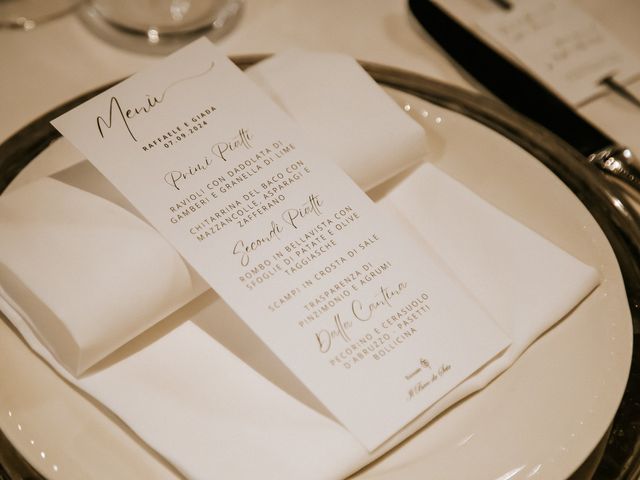 Menù
RAFFAELE E GIADA
07.09.2024
Primi Piatti
RAVIOLI CON DADOLATA DI
GAMBERI E GRANELLA DI LIME
CHITARRINA DEL BACO CON
MAZZANCOLLE, ASPARAGI E
ZAFFERANO
Secondi Piatti
ROMBO IN BELLAVISTA CON
SFOGLIE DI PATATE E OLIVE
TAGGIASCHE
SCAMPI IN CROSTA DI SALE
TRASPARENZA DI
PINZIMONIO E AGRUMI
Dalla Cantina
PECORINO E CERASUOLO
D'ABRUZZO - PASETTI
BOLLICINA
Il Baco da Seta